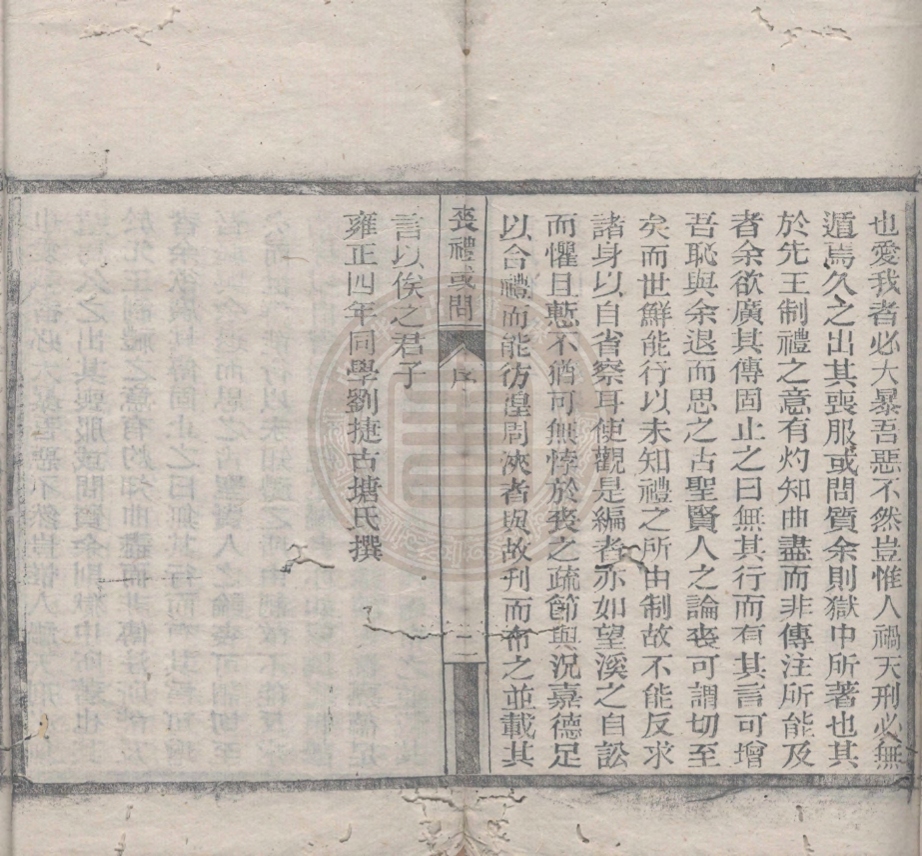 也愛我者必大暴吾惡不然豈惟人禍天刑必無
遁焉久之出其喪服或問質余則獄中所著也其
於先王制禮之意有灼知曲盡而非傳注所能及
者余欲廣其傳固止之曰無其行而有其言可增
吾恥與余退而思之古聖賢人之論喪可謂切至
矣而世鮮能行以未知禮之所由制故不能反求
諸身以自省察耳使觀是編者亦如望溪之自訟
而懼且慙不猶可無悖於喪之疏節與況嘉德足
以合禮而能彷徨周浹者與故刊而布之並載其
喪禮或問
序
二
言以俟之君子
雍正四年同學劉捷古塘氏撰